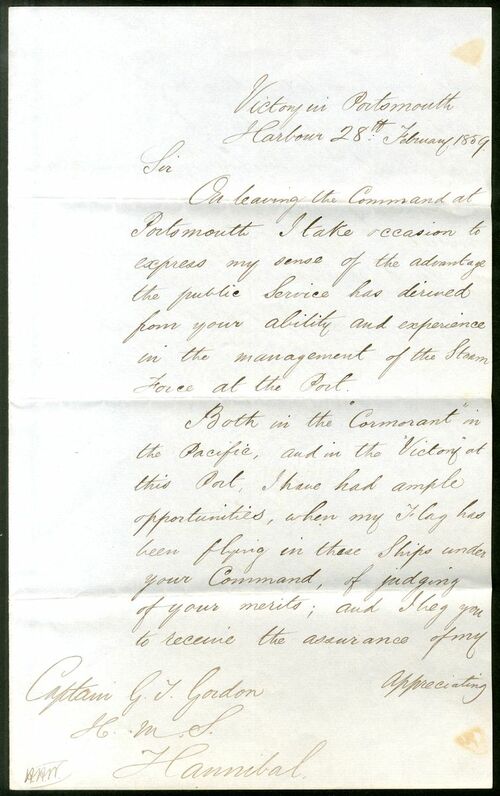 Victory in Portsmouth
Harbour 28th February 1859
Sir
On leaving the Command at
Portsmouth I take occasion to
express my sense of the advantage
the public Service has derived
from your ability and experience
in the management of the Steam
Force at the Port.
Both in the "Cormorant" in
the Pacific, and in the "Victory" at
this Port, I have had ample
opportunities, when my Flag has
been flying in these Ships under
your Command, of judging
of your merits; and I beg you
to receive the assurance of my
Appreciating
Captain G. T. Gordon
H. M. S.
Hannibal.